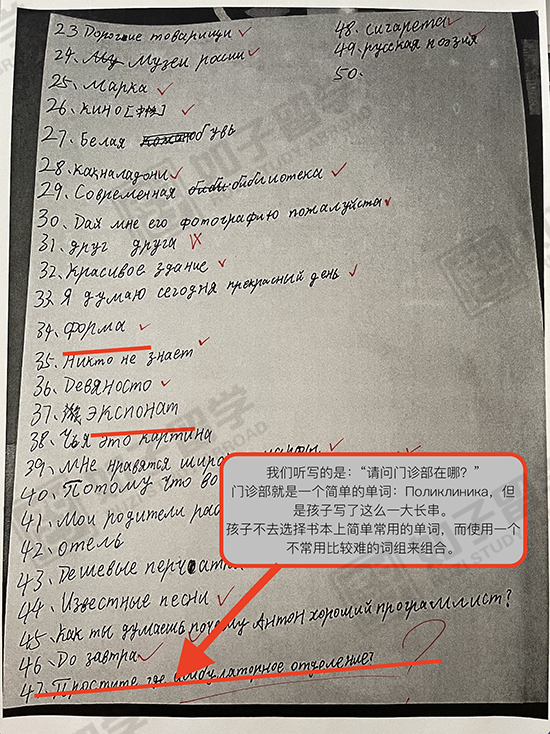 23 Дорогие товарищи
24. Музеи россии
25. Марка
26. кино[中快]
27. Белая обувь
28. Какналадони
29. Современная библиотека
30. Дай мне его фотографию пожалуйста
31. друг друга
32. Красивое здание
33. Я думаю сегодня прекрасный день
34. форма
35. Никто не знает
36. Девяносто
37. ЭКСПОНАТ
38. Чья это картина
39. Мне нравятся
40. Потому что
41. Мои родители
42. отель
43. Дешевые
44. Известные песни
45. Как ты думаешь почему Антон хороший программлист?
46. До завтра
47. Простите где амбулаторное отделение?
48. сигарета
49. русская поэзия
50.
我们听写的是：“请问门诊部在哪？”
门诊部就是一个简单的单词：Поликлиника，但
是孩子写了这么一大长串。
孩子不去选择书本上简单常用的单词，而使用一个
不常用比较难的词组来组合。